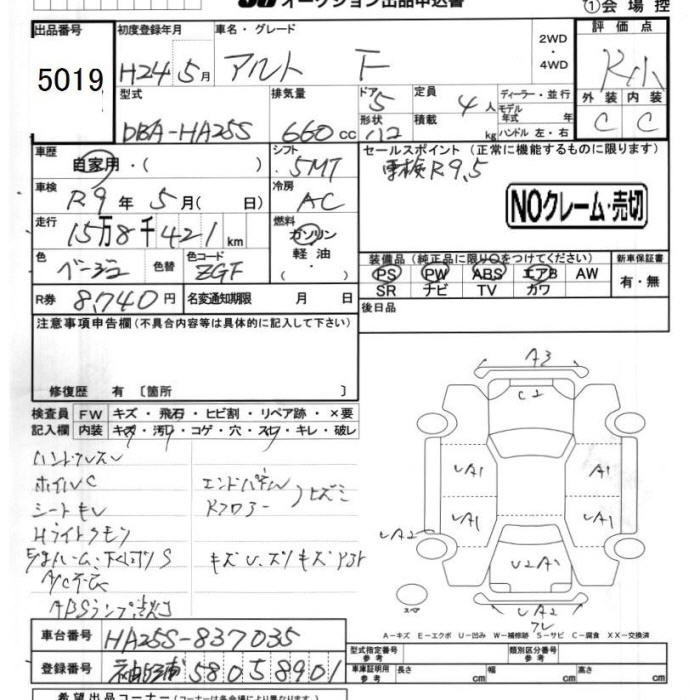 オークション出品申込書
①会場控
出品番号 5019
初度登録年月 H24年5月
車名・グレード アルト F
2WD・4WD
評価点 R小
外装 C 内装 C
型式 DBA-HA25S
排気量 660cc
ドア 5
形状
定員 4人
積載 kg
ディーラー・並行
モデル年式 年
ハンドル 左・右
車歴 自家用・( )
シフト 5MT
セールスポイント(正常に機能するものに限ります)
車検R9.5
NOクレーム・売切
車検 R9年5月( 日)
冷房 AC
走行 15万8千421km
燃料 ガソリン 軽油・
色 ベージュ
色替
色コード ZGF
装備品(純正品に限り○をつけてください)
PS PW ABS エアB AW
SR ナビ TV カワ
新車保証書 有・無
R券 8,740円
名変通知期限 月 日
後日品
注意事項申告欄(不具合内容等は具体的に記入して下さい)
修復歴 有〔箇所 〕
検査員記入欄
FW キズ・飛石・ヒビ割・リペア跡・×要
内装 キズ・汚レ・コゲ・穴・スレ・キレ・破レ
ハンドルスレ
ホイルC
シートモレ
Hライトクモリ
A/C不良
エンドパネル
Kフロアー
ヒズミ
A3
C2
UA1
A1
UA1
UA1
UA2
U2A1
UA2
ワレ
スペア
A-キズ E-エクボ U-凹み W-補修跡 S-サビ C-腐食 XX-交換済
車台番号 HA25S-837035
登録番号 58058901
型式指定番号 参考
類別区分番号 参考
車庫証明用 参考 長さ cm 幅 cm 高さ cm
希望出品コーナー(コーナーは各会場により異なります。)